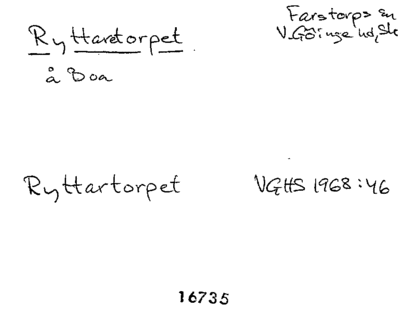 Ryttaretorpet
å Boa
Farstorps sn
V. Göinge hd, Sk
Ryttartorpet
VGHS 1968:46
16735